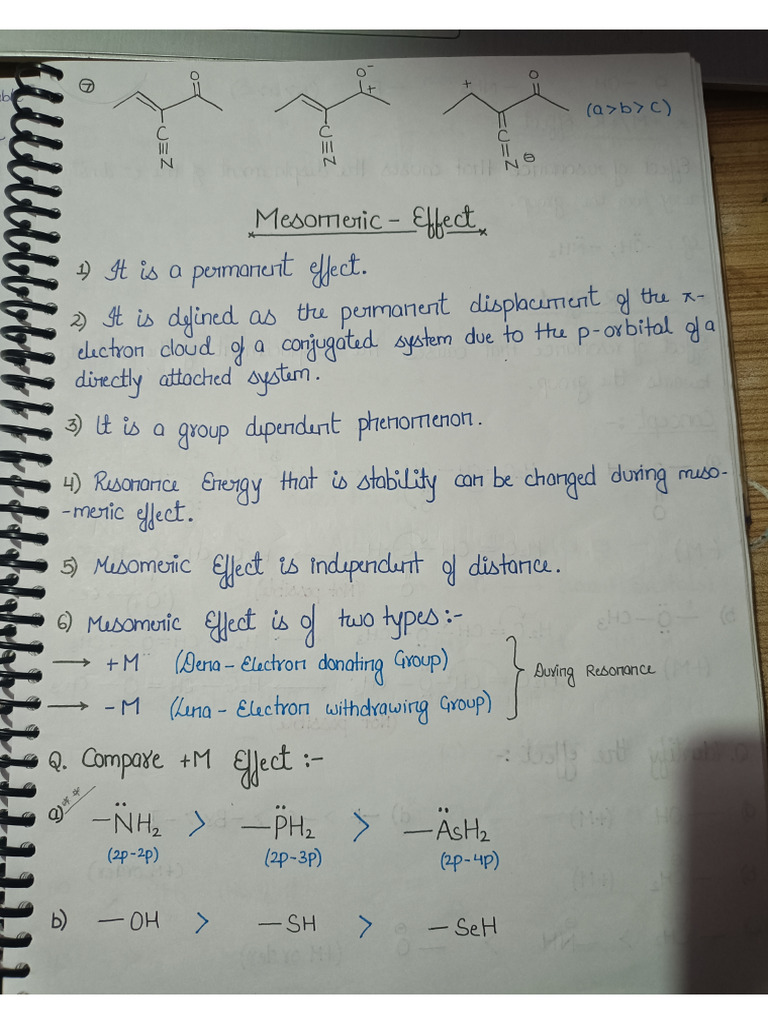 ⑦
O
C
≡
N
O⁻
+
C
≡
N
+
O
C
N⊖
(a>b>c)
Mesomeric - Effect
1) It is a permanent effect.
2) It is defined as the permanent displacement of the π-
electron cloud of a conjugated system due to the p-orbital of a
directly attached system.
3) It is a group dependent phenomenon.
4) Resonance Energy that is stability can be changed during meso-
-meric effect.
5) Mesomeric Effect is independent of distance.
6) Mesomeric Effect is of two types:-
→ +M (Dena - Electron donating Group)
→ -M (Lena - Electron withdrawing Group)
During Resonance
Q. Compare +M Effect :-
a) ** —N̈H₂ > —P̈H₂ > —ÄsH₂
(2p-2p) (2p-3p) (2p-4p)
b) —OH > —SH > —SeH